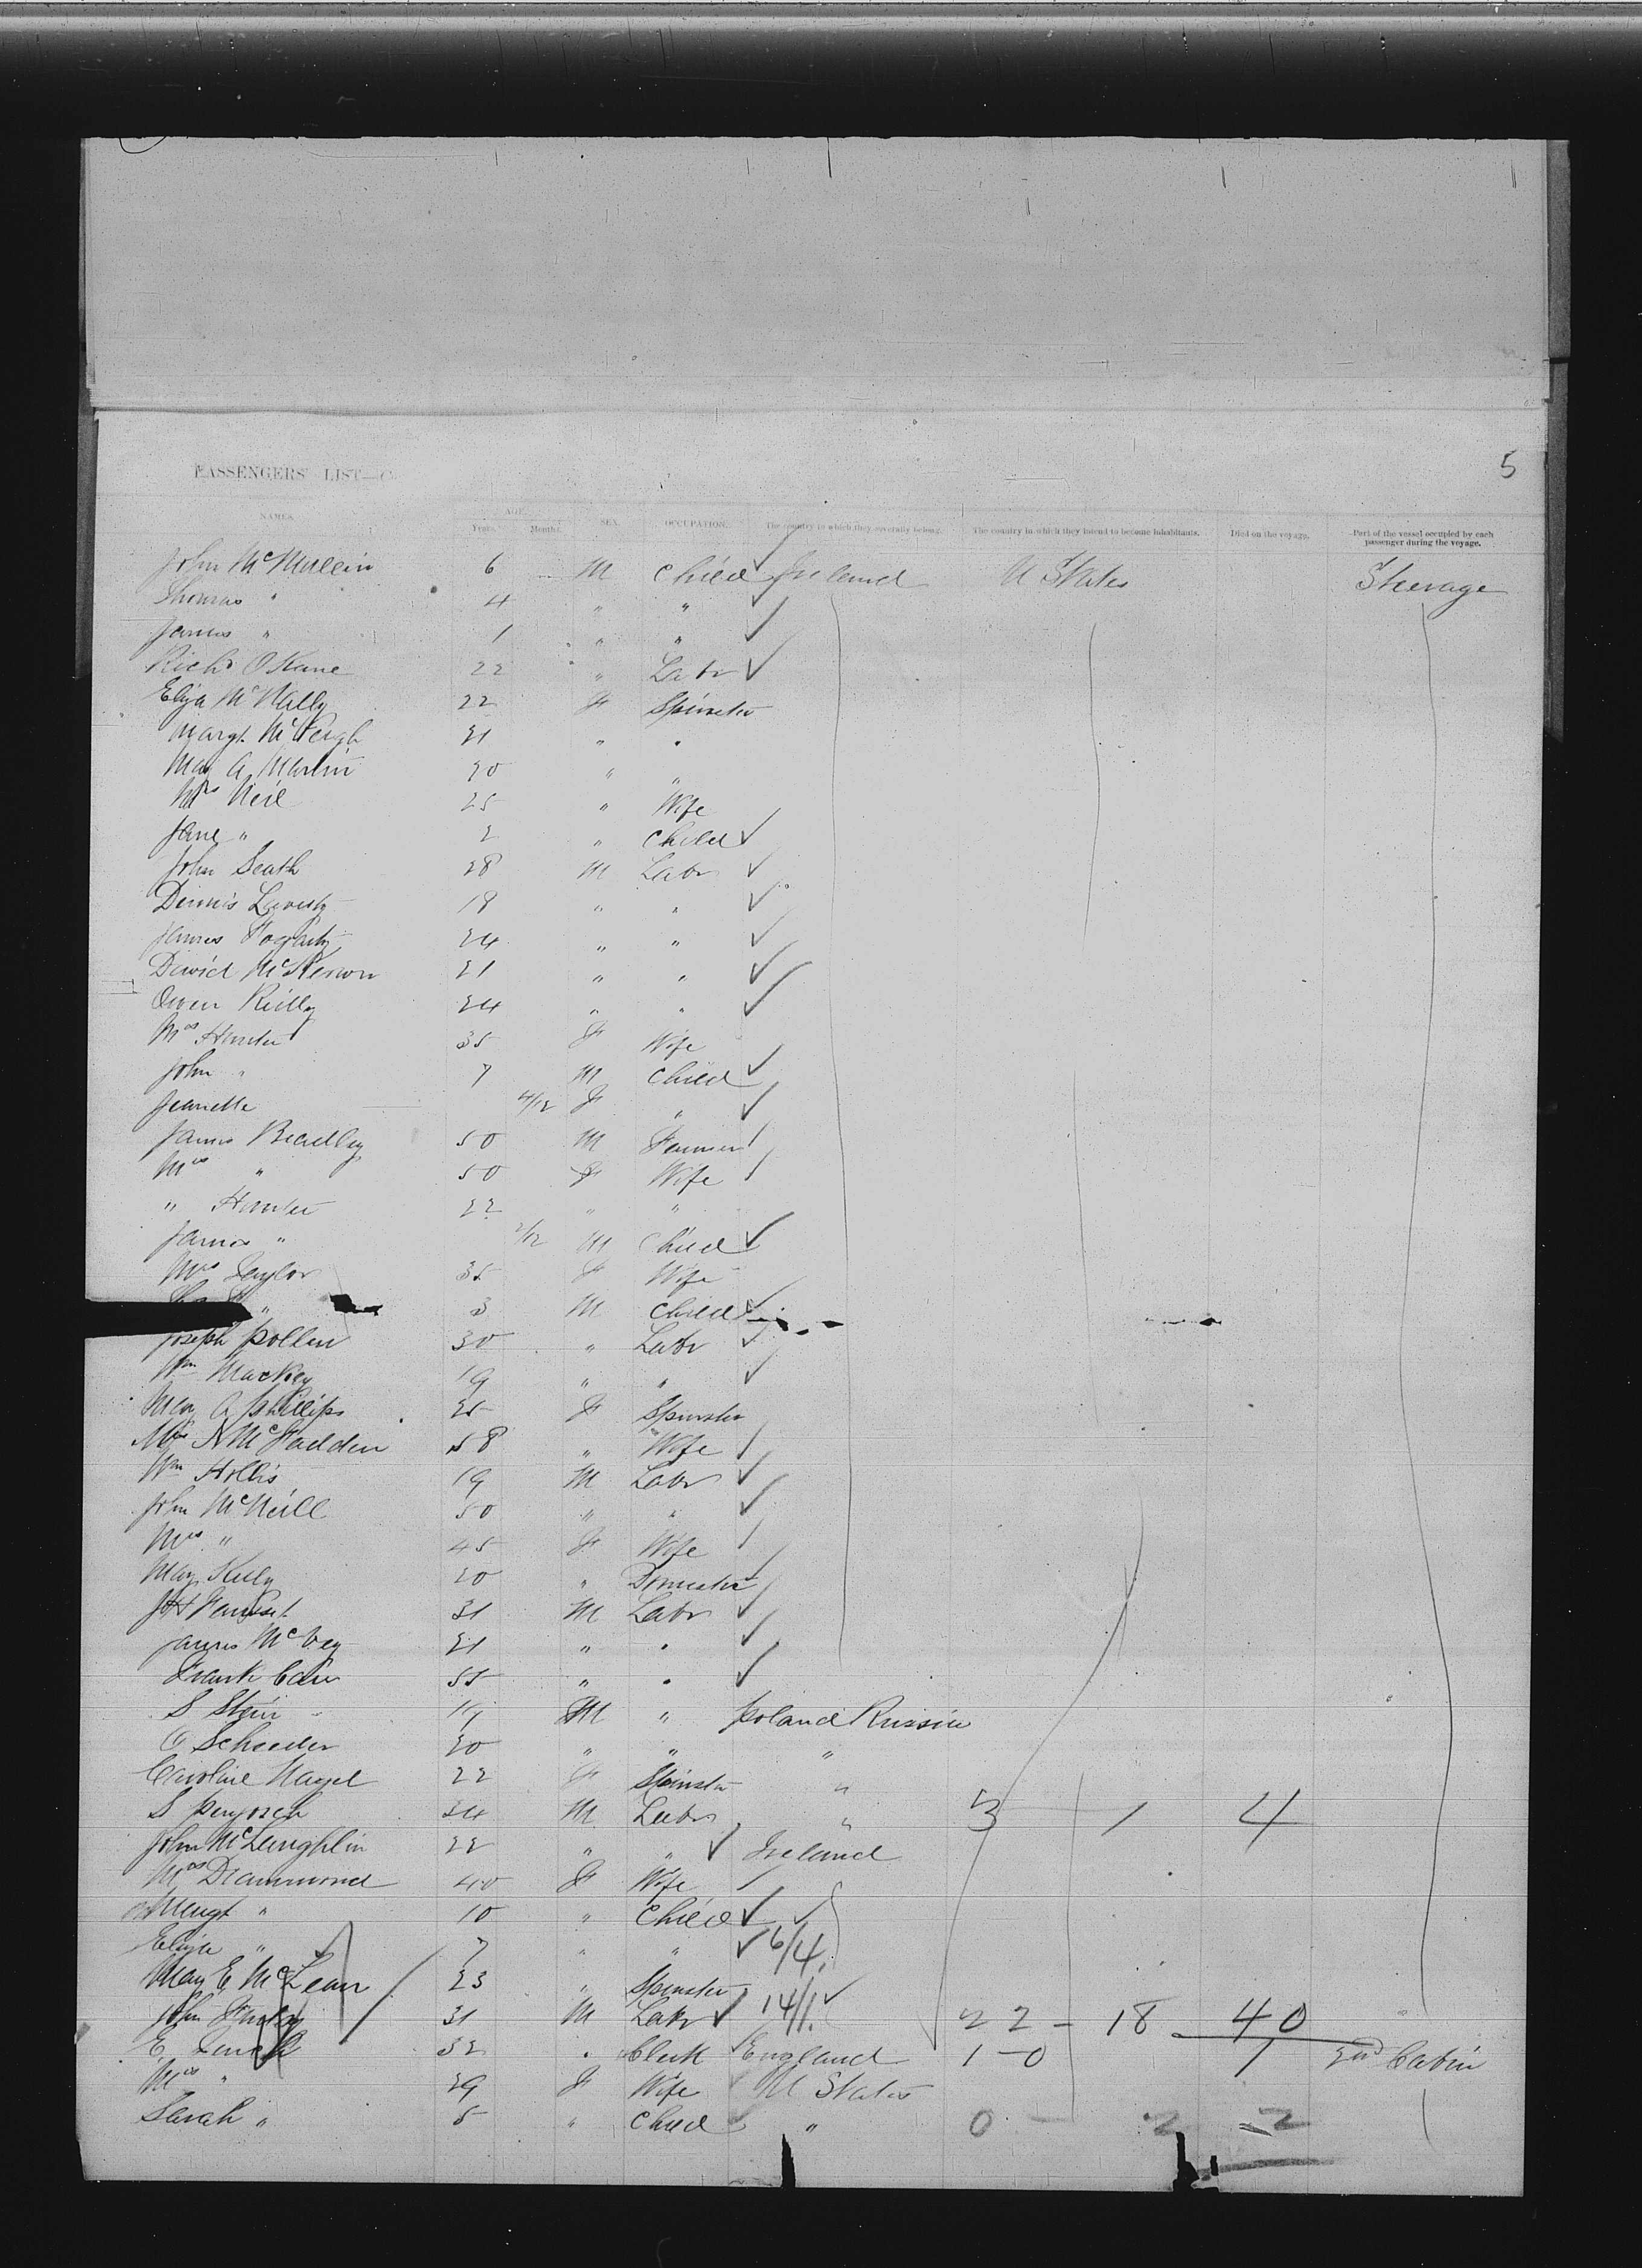 5
PASSENGERS' LIST—C
NAMES. AGE. Years. Months. SEX. OCCUPATION. The country to which they severally belong. The country in which they intend to become inhabitants. Died on the voyage. Part of the vessel occupied by each passenger during the voyage.
John McMullin 6 M Child Ireland U States Steerage
Thomas " 4 " "
James " 1 " "
Richd O'Kane 22 " Labr
Eliza McNally 22 F Spinster
Margt McVeigh 21 " "
May A Martin 20 " "
Mrs Neil 25 " Wife
Jane " 2 " Child
John Seath 28 M Labr
Dennis Laverty 18 " "
James Fogarty 24 " "
David McKeown 21 " "
Owen Reilly 24 " "
Mrs Hunter 35 F Wife
John " 7 M Child
Jeanette 4/12 F "
James Bradley 50 M Farmer
Mrs " 50 F Wife
" Hunter 22 " "
James " 2/12 M Child
Mrs Taylor 35 F Wife
" 3 M Child
Joseph Pollen 30 " Labr
Wm Mackey 19 " "
May A Phillips 25 F Spinster
Mrs N McFadden 58 " Wife
Wm Hollis 19 M Labr
John McNeill 50 " "
Mrs " 45 F Wife
May Kelly 20 " Domestic
31 M Labr
James McVey 21 " "
Frank 55 " "
S Stein 19 M " Poland Russia
O Scheeder 20 " " "
Caroline Nagel 22 F Spinster "
S 24 M Labr " 3 1 4
John McLaughlin 22 " " Ireland
Mrs Drammond 40 F Wife
Margt " 10 " Child
Eliza " 7 " " 6/4
May E McLean 23 " Spinster
John 31 M Labr 14/1. 22 - 18 40
E 32 " Clerk England 1-0 1 2nd Cabin
Mrs " 29 F Wife U States
Sarah " 5 " Child " 0 - 2 = 2